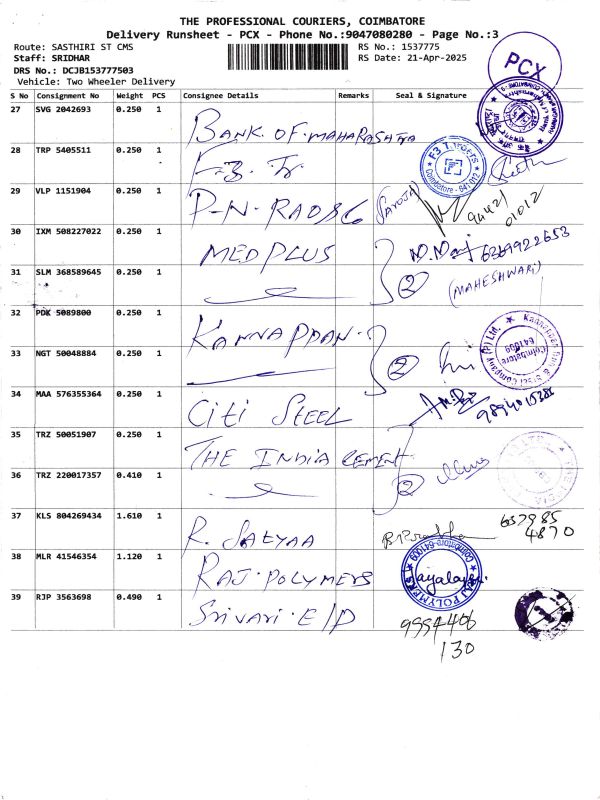 THE PROFESSIONAL COURIERS, COIMBATORE
Delivery Runsheet - PCX - Phone No.:9047080280 - Page No.:3
Route: SASTHIRI ST CMS
RS No.: 1537775
Staff: SRIDHAR
RS Date: 21-Apr-2025
DRS No.: DCJB153777503
Vehicle: Two Wheeler Delivery
PCX
S No Consignment No Weight PCS Consignee Details Remarks Seal & Signature
27 SVG 2042693 0.250 1 BANK OF MAHARASHTRA
28 TRP 5405511 0.250 1 F-3. Tr
F3 Tigers
Coimbatore - 641 012
29 VLP 1151904 0.250 1 P-N-RAO 86 SAROJA 94421 01012
30 IXM 508227022 0.250 1 MEDPLUS 6369922653
31 SLM 368589645 0.250 1 2 (MAHESHWARI)
32 PDK 5089800 0.250 1 KANNAPPAN
33 NGT 50048884 0.250 1 2
Coimbatore 641009
34 MAA 576355364 0.250 1 CITI STEEL
35 TRZ 50051907 0.250 1 THE INDIA CEMENT
36 TRZ 220017357 0.410 1 2
37 KLS 804269434 1.610 1 R. SATYAA 637985 4870
38 MLR 41546354 1.120 1 RAJ. POLYMERS
RAJ POLYMERS Coimbatore-641009
39 RJP 3563698 0.490 1 SRIVARI. E/P
9994406
130